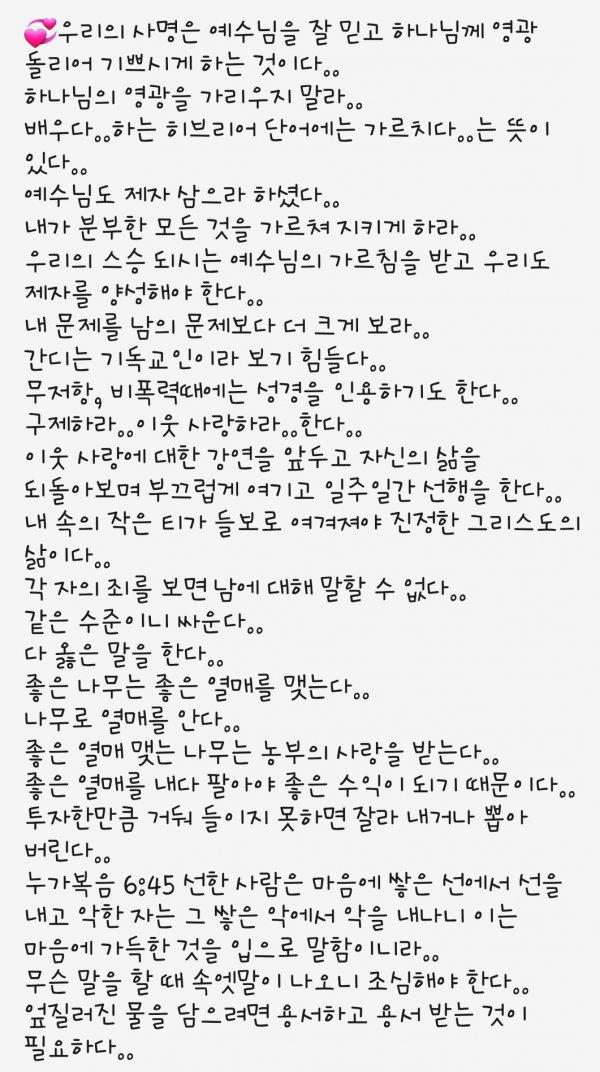 💞우리의 사명은 예수님을 잘 믿고 하나님께 영광
돌리어 기쁘시게 하는 것이다。。
하나님의 영광을 가리우지 말라。。
배우다。。하는 히브리어 단어에는 가르치다。。는 뜻이
있다。。
예수님도 제자 삼으라 하셨다。。
내가 분부한 모든 것을 가르쳐 지키게 하라。。
우리의 스승 되시는 예수님의 가르침을 받고 우리도
제자를 양성해야 한다。。
내 문제를 남의 문제보다 더 크게 보라。。
간디는 기독교인이라 보기 힘들다。。
무저항, 비폭력때에는 성경을 인용하기도 한다。。
구제하라。。이웃 사랑하라。。한다。。
이웃 사랑에 대한 강연을 앞두고 자신의 삶을
되돌아보며 부끄럽게 여기고 일주일간 선행을 한다。。
내 속의 작은 티가 들보로 여겨져야 진정한 그리스도의
삶이다。。
각 자의 죄를 보면 남에 대해 말할 수 없다。。
같은 수준이니 싸운다。。
다 옳은 말을 한다。。
좋은 나무는 좋은 열매를 맺는다。。
나무로 열매를 안다。。
좋은 열매 맺는 나무는 농부의 사랑을 받는다。。
좋은 열매를 내다 팔아야 좋은 수익이 되기 때문이다。。
투자한만큼 거둬 들이지 못하면 잘라 내거나 뽑아
버린다。。
누가복음 6:45 선한 사람은 마음에 쌓은 선에서 선을
내고 악한 자는 그 쌓은 악에서 악을 내나니 이는
마음에 가득한 것을 입으로 말함이니라。。
무슨 말을 할 때 속엣말이 나오니 조심해야 한다。。
엎질러진 물을 담으려면 용서하고 용서 받는 것이
필요하다。。